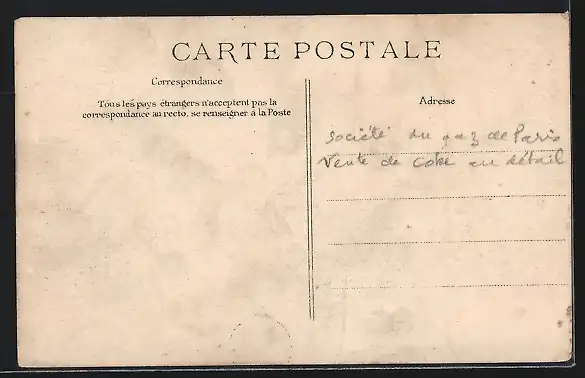 CARTE POSTALE
Correspondance
Tous les pays étrangers n'acceptent pas la
correspondance au recto, se renseigner à la Poste
Adresse
Société du gaz de Paris
Vente de coke au détail